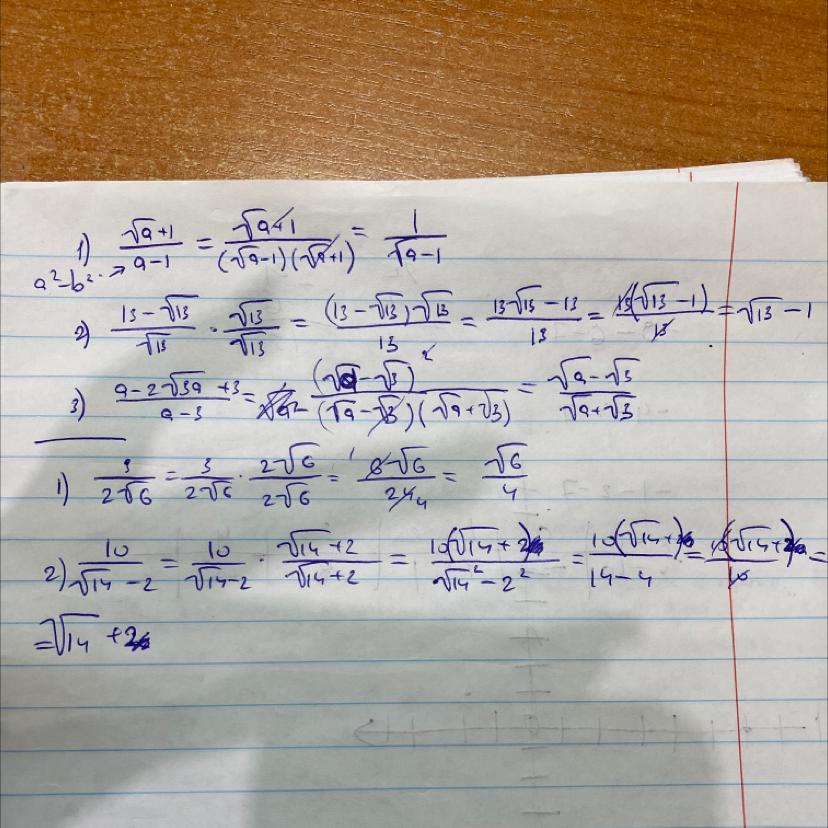 1) (√a+1)/(a-1) = (√a+1)/((√a-1)(√a+1)) = 1/(√a-1)
a²-b² →
2) (13-√13)/√13 · √13/√13 = ((13-√13)√13)/13 = (13√13-13)/13 = (13(√13-1))/13 = √13-1
3) (a-2√3a+3)/(a-3) = (√a-√3)²/((√a-√3)(√a+√3)) = (√a-√3)/(√a+√3)
1) 3/(2√6) = 3/(2√6) · (2√6)/(2√6) = (6√6)/24 = √6/4
2) 10/(√14-2) = 10/(√14-2) · (√14+2)/(√14+2) = (10(√14+2))/(√14²-2²) = (10(√14+2))/(14-4) = (10(√14+2))/10 =
= √14+2